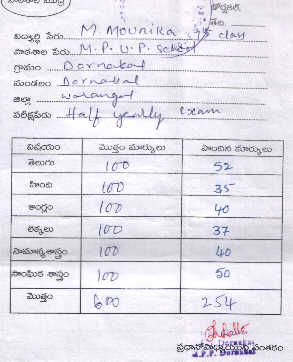 విద్యార్థి పేరు M. Mounika class
పాఠశాల పేరు M. P. U. P. School
గ్రామం Dornakal
మండలం Dornakal
జిల్లా Warangal
పరీక్షపేరు Half yearly exam
విషయం మొత్తం మార్కులు పొందిన మార్కులు
తెలుగు 100 52
హింది 100 35
ఆంగ్లం 100 40
లెక్కలు 100 37
సామాన్యశాస్త్రం 100 40
సాంఘిక శాస్త్రం 100 50
మొత్తం 600 254
Dornakal
ప్రధానోపాధ్యాయుని సంతకం